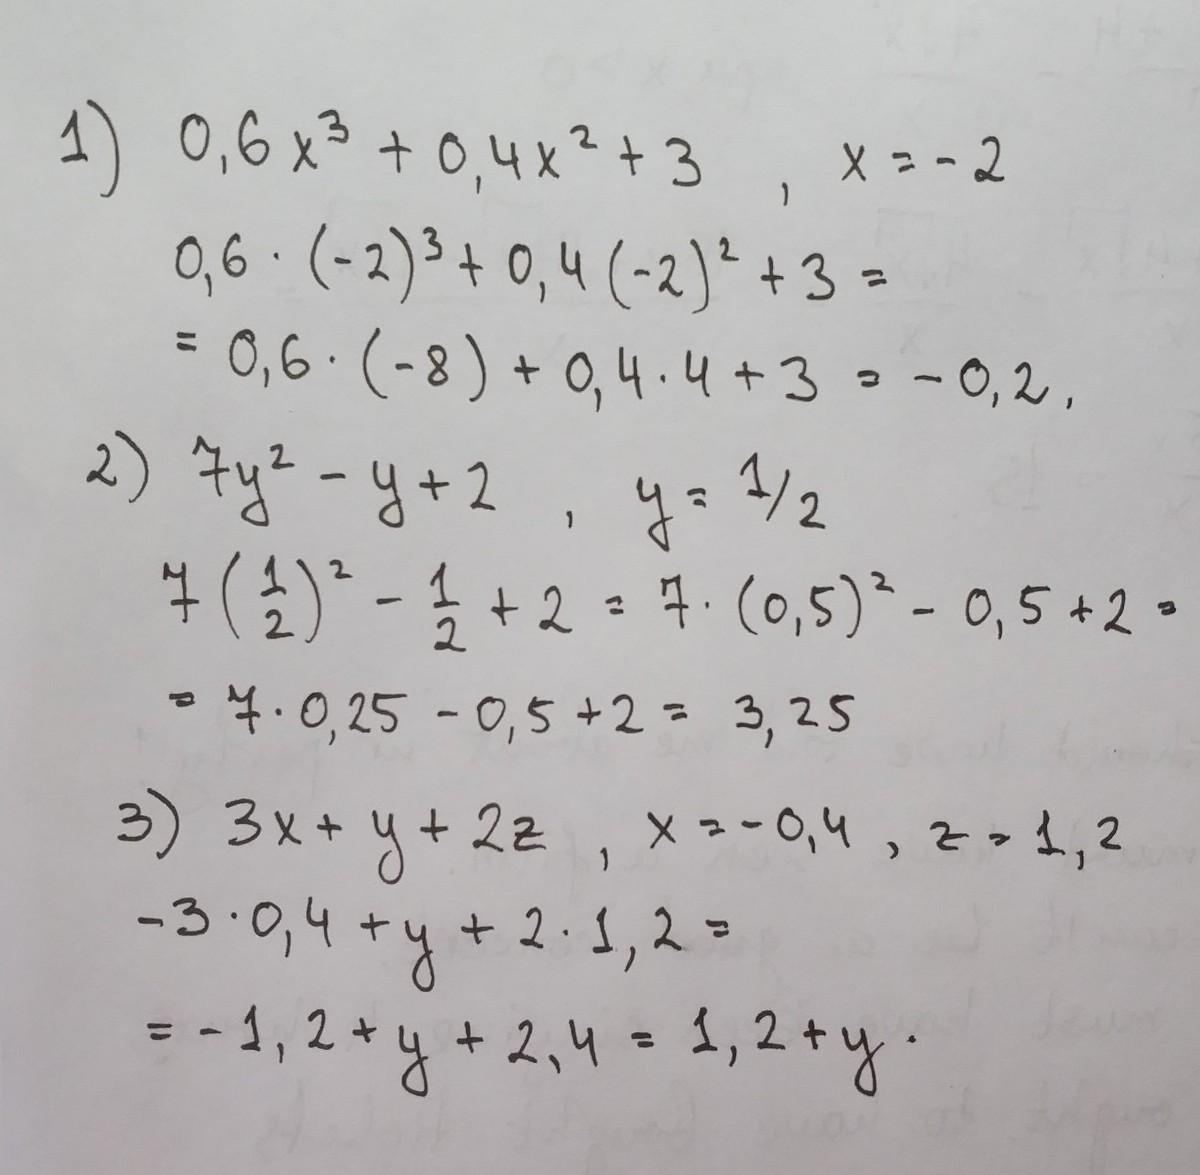 1) 0,6x³ + 0,4x² + 3 , x = -2
0,6 · (-2)³ + 0,4 (-2)² + 3 =
= 0,6 · (-8) + 0,4 · 4 + 3 = -0,2.
2) 7y² - y + 2 , y = 1/2
7 (1/2)² - 1/2 + 2 = 7 · (0,5)² - 0,5 + 2 =
= 7 · 0,25 - 0,5 + 2 = 3,25
3) 3x + y + 2z , x = -0,4 , z = 1,2
-3 · 0,4 + y + 2 · 1,2 =
= -1,2 + y + 2,4 = 1,2 + y .